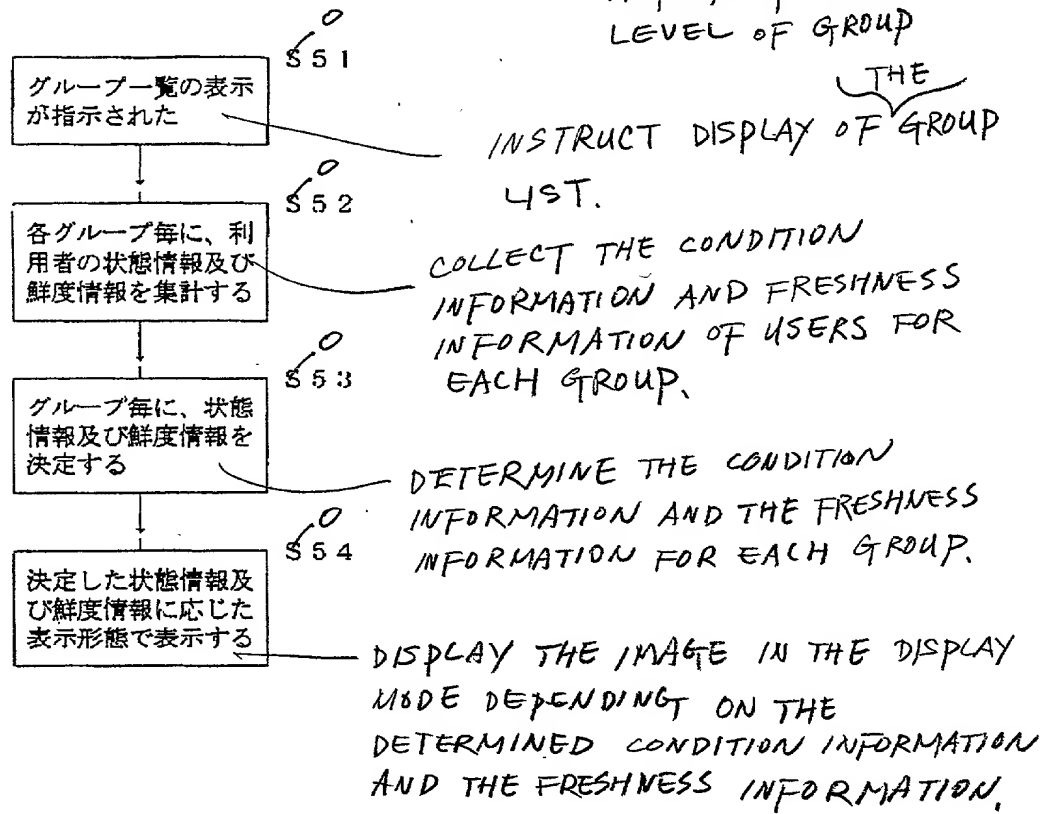 LEVEL OF GROUP
S51
グループ一覧の表示
が指示された
THE
INSTRUCT DISPLAY OF GROUP
LIST.
S52
各グループ毎に、利
用者の状態情報及び
鮮度情報を集計する
COLLECT THE CONDITION
INFORMATION AND FRESHNESS
INFORMATION OF USERS FOR
EACH GROUP.
S53
グループ毎に、状態
情報及び鮮度情報を
決定する
DETERMINE THE CONDITION
INFORMATION AND THE FRESHNESS
INFORMATION FOR EACH GROUP.
S54
決定した状態情報及
び鮮度情報に応じた
表示形態で表示する
DISPLAY THE IMAGE IN THE DISPLAY
MODE DEPENDING ON THE
DETERMINED CONDITION INFORMATION
AND THE FRESHNESS INFORMATION.